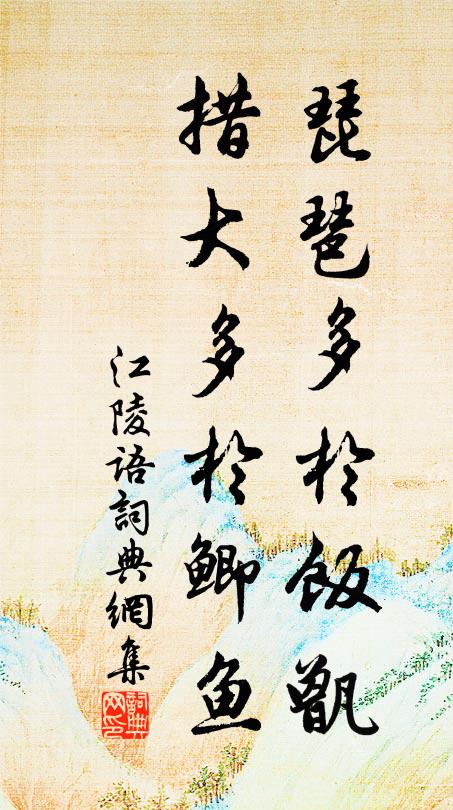 琵琶多於飯甑
措大多於鯽魚
江陵語詞典網集
詞典
网印